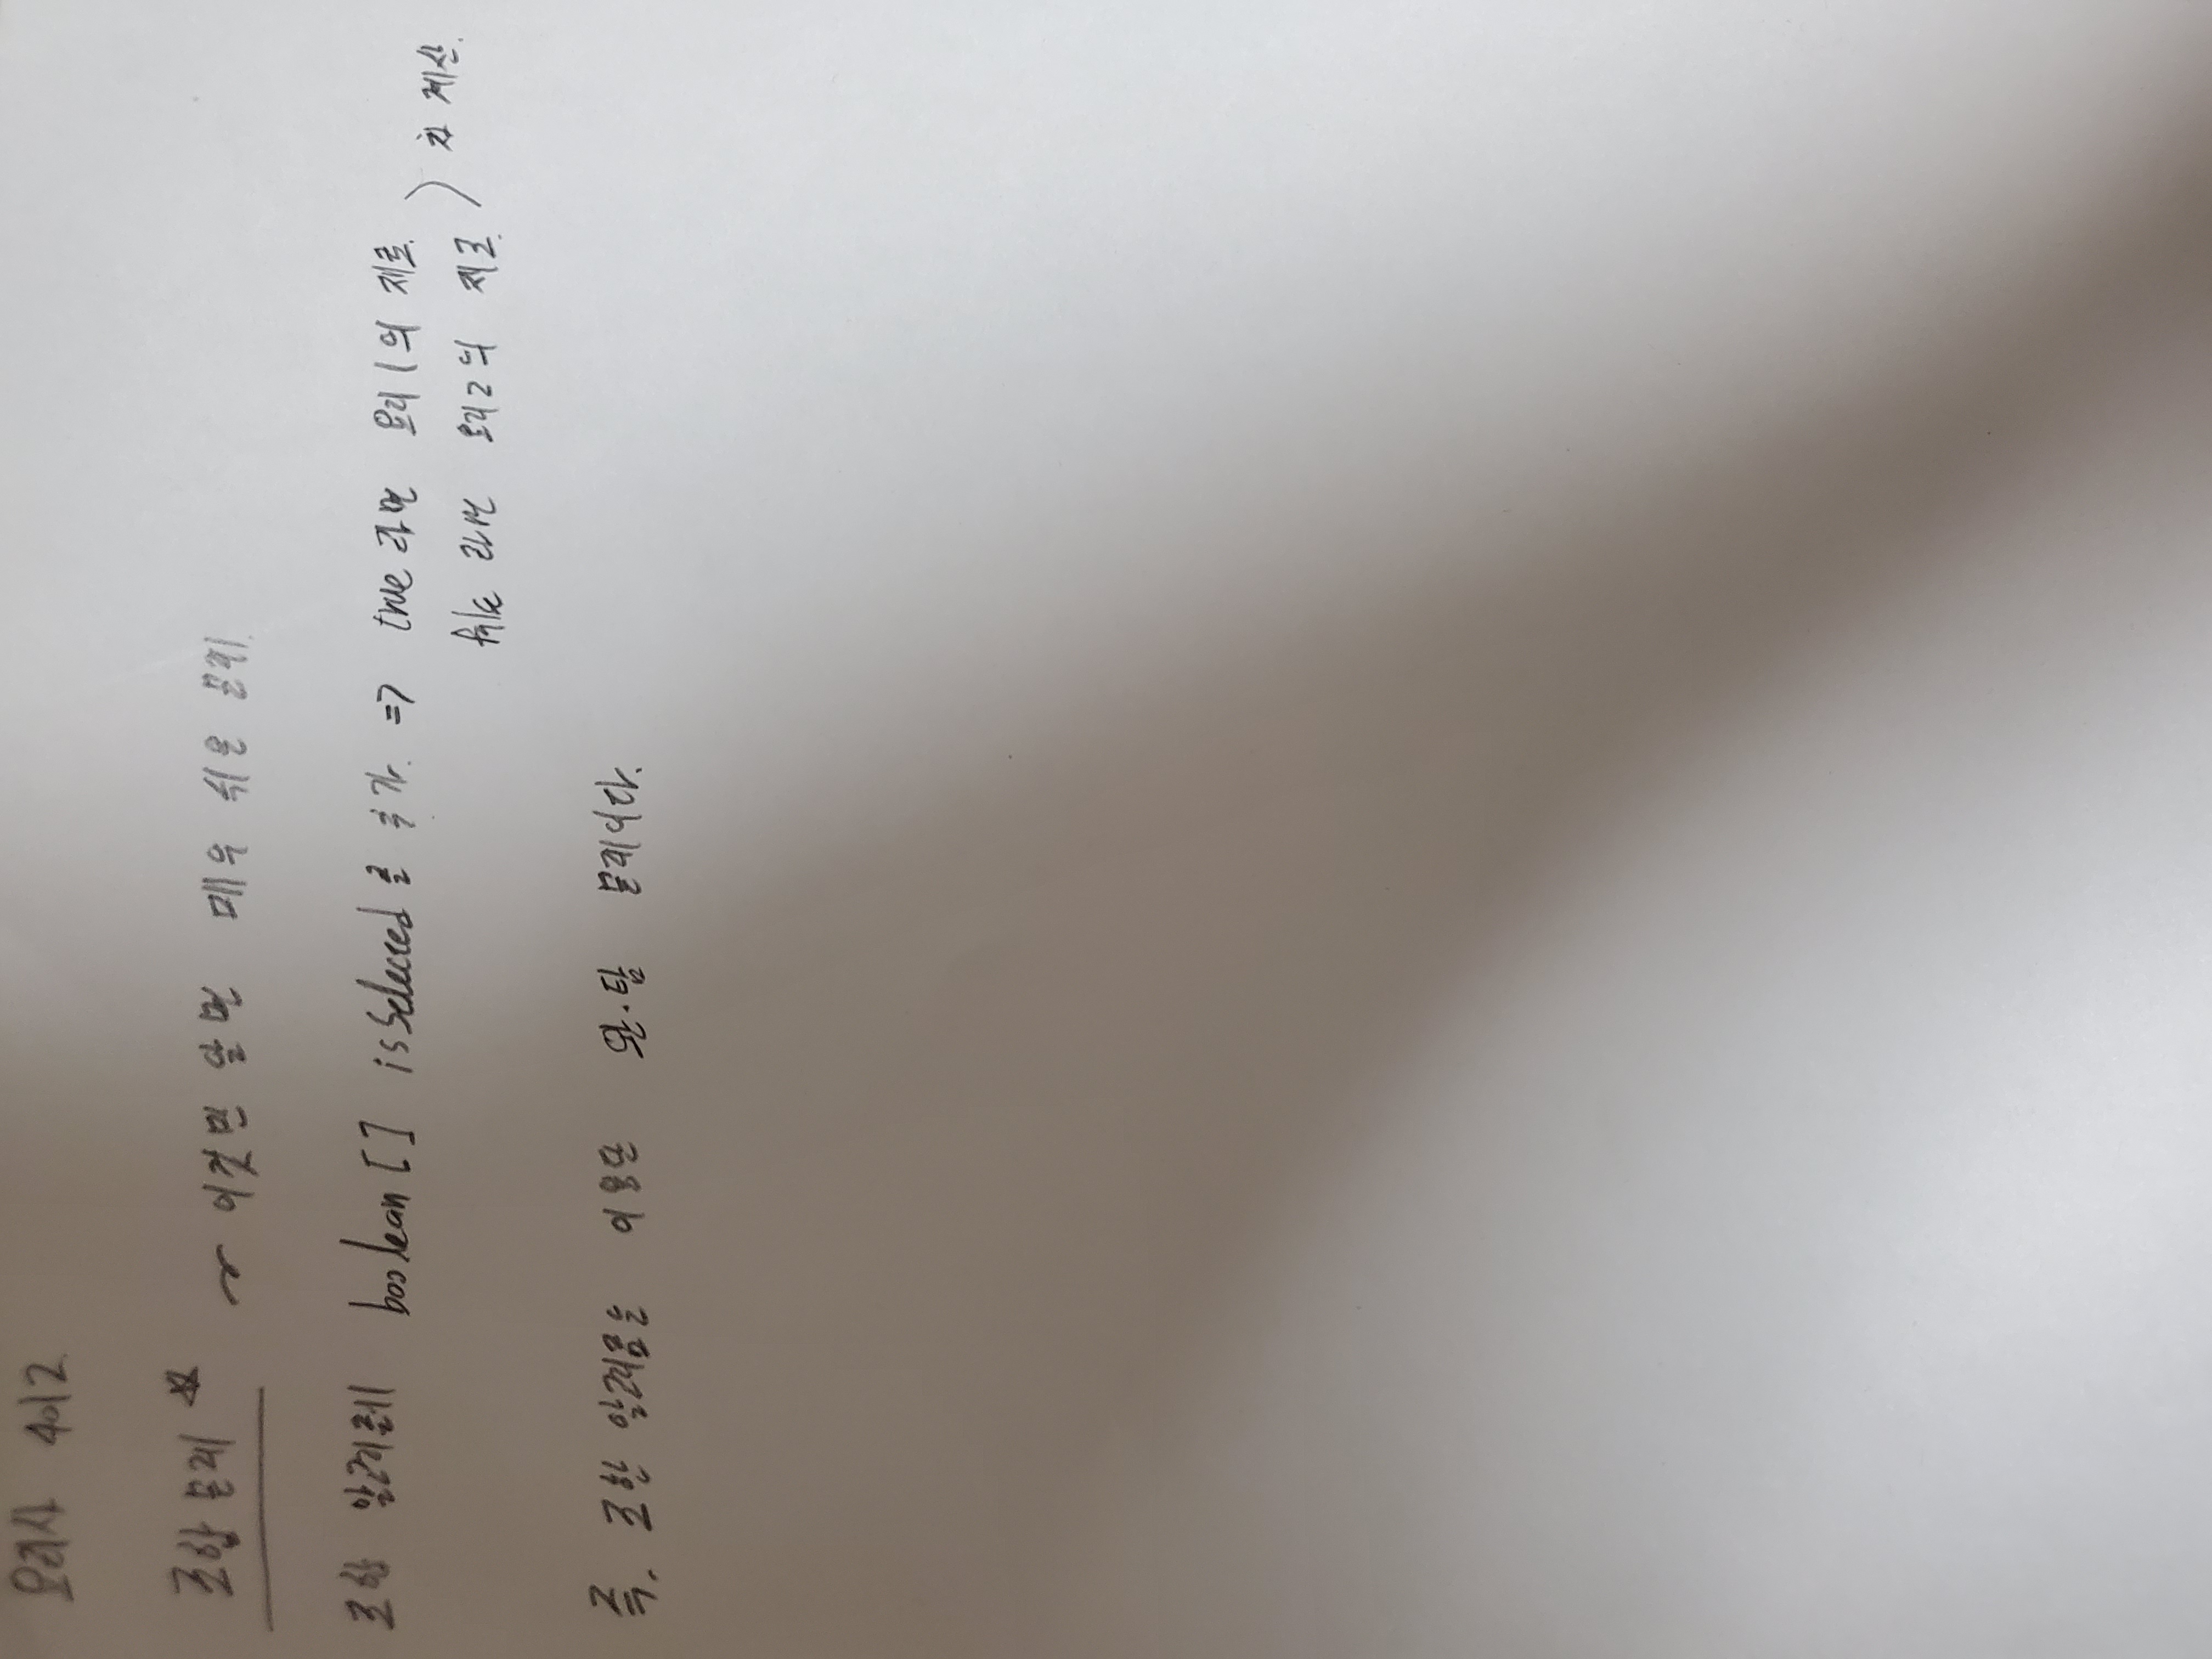 요리사 4012.
조합 문제 ☆ ~ 이것만 알면 매우 쉬운 문제.
조합 알고리즘에 boolean [] isSelected를 추가. => true 라면 요리 1의 재료.
false 라면 요리2의 재료. ) 차 계산.
즉. 조합 알고리즘을 이용한 완.탐 문제이다.